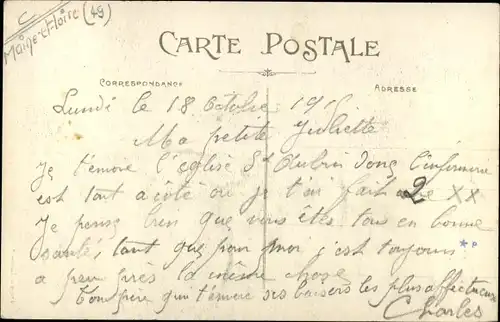 Maine-et-Loire (49)
CARTE POSTALE
CORRESPONDANCE
ADRESSE
Lundi le 18 Octobre 191
Ma petite Juliette
Je t'envoie l'église St Aubin dont l'infirmerie
est tout à côté où je t'ai fait 2 XX
Je pense bien que vous êtes tous en bonne
santé, tant que pour moi c'est toujours
a peu près la même chose
Ton père qui t'envoie ses baisers les plus affectueux
Charles